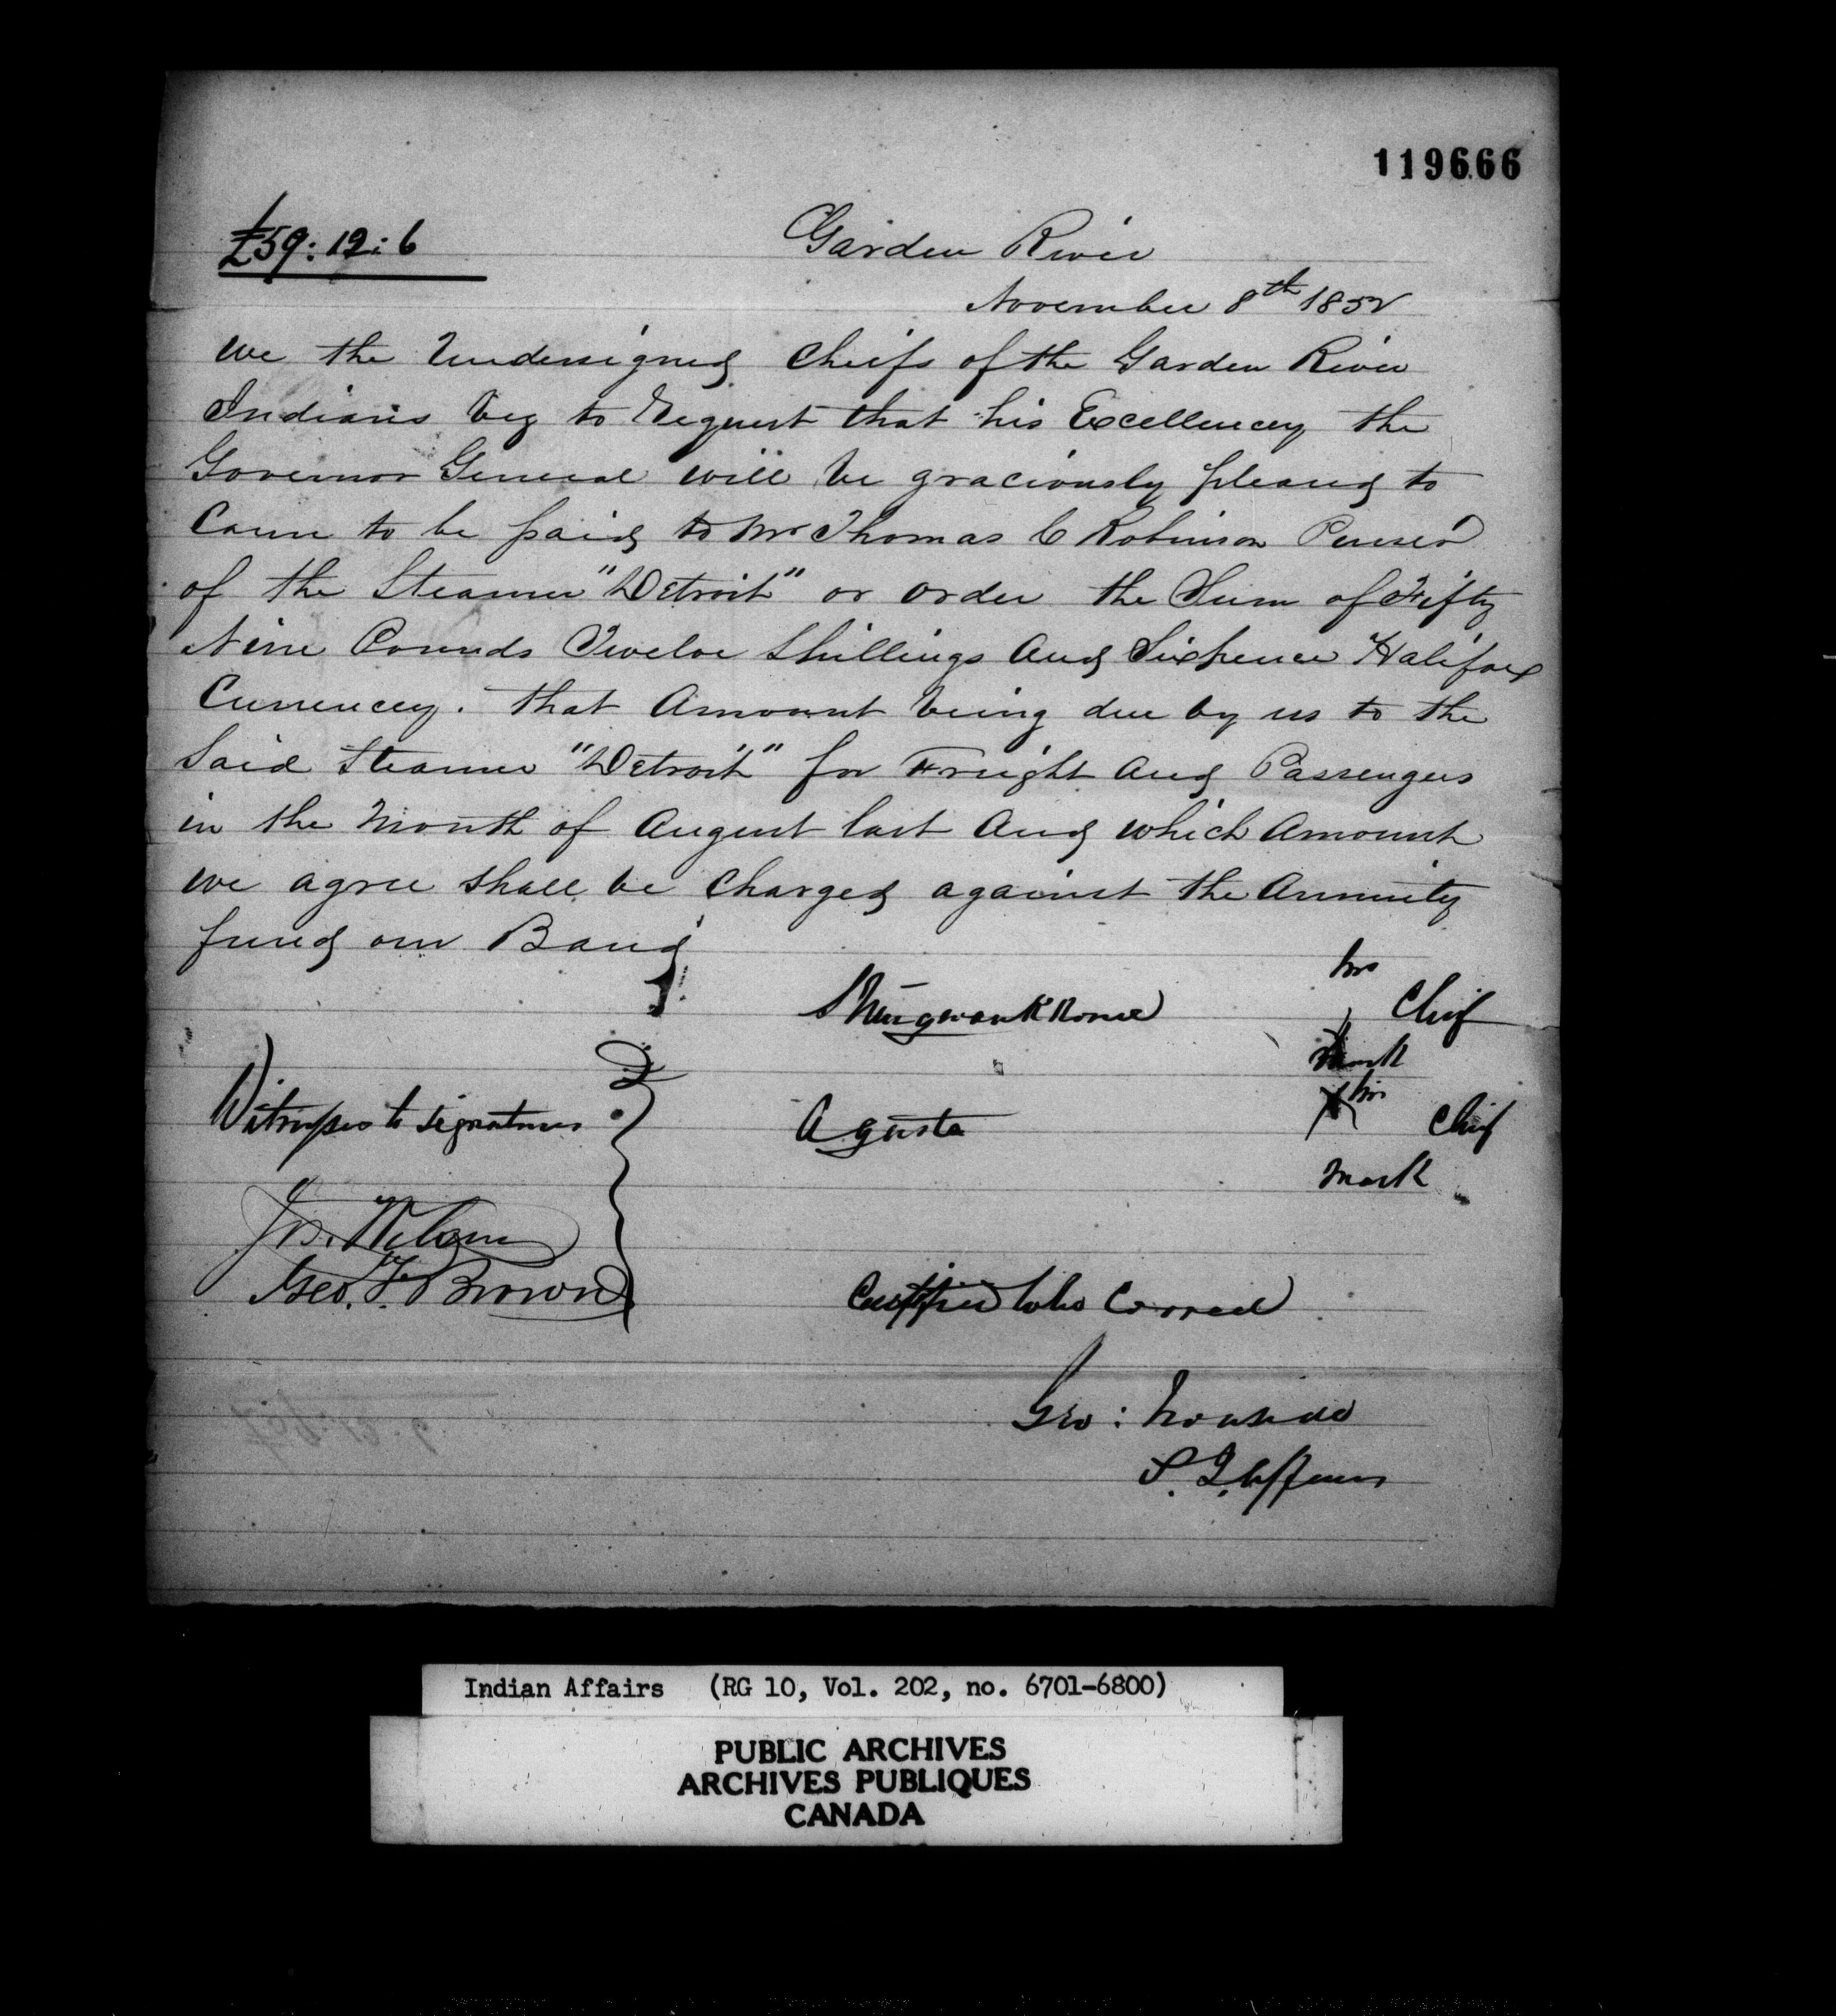 119666
£59:12:6
Garden River
November 8th 1852
We the Undersigned Cheifs of the Garden River
Indians beg to Request that his Excellencey the
Governor General will be graciously pleased to
Cause to be paid to Mr Thomas C Robinson Purser
of the Steamer "Detroit" or order the Sum of Fifty
Nine Pounds Twelve Shillings And Sixpence Halifax
Currencey. that Amount being due by us to the
Said Steamer "Detroit" for Freight And Passengers
in the Month of August last And which Amount
we agree shall be Charged against the Annuity
fund our Band
Shingwaukkonce his Chief
mark
Witnesses to signatures
Agusta his Chief
mark
Jos. Wilson
Geo. F. Brown
Certified to be Correct
Geo: Ironside
S. I. Affairs
Indian Affairs (RG 10, Vol. 202, no. 6701-6800)
PUBLIC ARCHIVES
ARCHIVES PUBLIQUES
CANADA